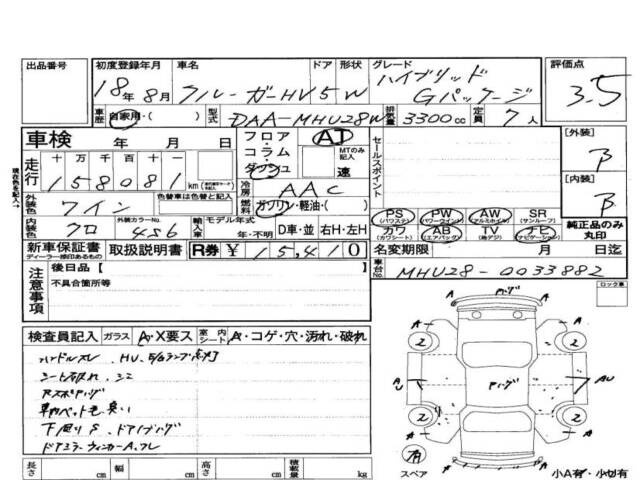 出品番号 初度登録年月 車名 ドア 形状 グレード 評価点
18年8月 クルーガーHV 5W ハイブリッド Gパッケージ 3.5
車歴 自家用・( ) 型式 DAA-MHU28W 排気量 3300cc 定員 7人
車検 年 月 日 フロア・コラム・ AT MTのみ記入 速 セールスポイント [外装] B
走行 十万千百十一 158081 km
冷房 AAC [内装] B
外装色 ワイン 色替車は色替と記入 燃料 ガソリン・軽油・( )
PS (パワステ) PW (パワーウインド) AW (アルミホイル) SR (サンルーフ)
内装色 クロ 外装カラーNo. 4S6 輸入車 モデル年式 年・不明 D車・並 右H・左H
カワ (カワシート) AB (エアバッグ) TV (地デジ) ナビ (ナビゲーション) 純正品のみ丸印
新車保証書 ディーラー捺印あるもの 取扱説明書 R券 ¥ 15,410 名変期限 月 日迄
注意事項 後日品 [ ] 車台No. MHU28-0033882
不具合箇所等 ロック車
検査員記入 ガラス A・X要ス 室内シート A・コゲ・穴・汚れ・破れ
ハンドルスレ、HV、E/Gランプ点灯
シート破れ、シミ
下廻りS、
ドアミラーウィンカーA、
長さ cm 幅 cm 高さ cm 積載量 kg
現在色を記入→
A A
A A
2 2
AU AU
2 2
有
スペア
小A有・小切有